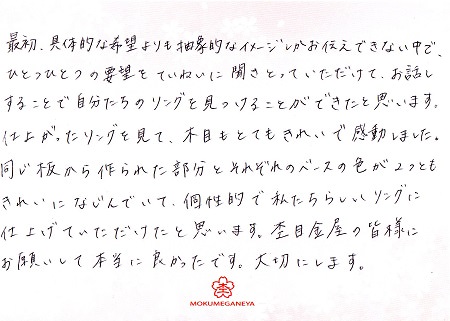 最初、具体的な希望よりも抽象的なイメージしかお伝えできない中で、
ひとつひとつの要望をていねいに聞きとっていただけて、お話し
することで自分たちのリングを見つけることができたと思います。
仕上がったリングを見て、木目もとてもきれいで感動しました。
同じ板から作られた部分とそれぞれのベースの色が2つとも
きれいになじんでいて、個性的で私たちらしいリングに
仕上げていただけたと思います。杢目金屋の皆様に
お願いして本当に良かったです。大切にします。
杢
MOKUMEGANEYA